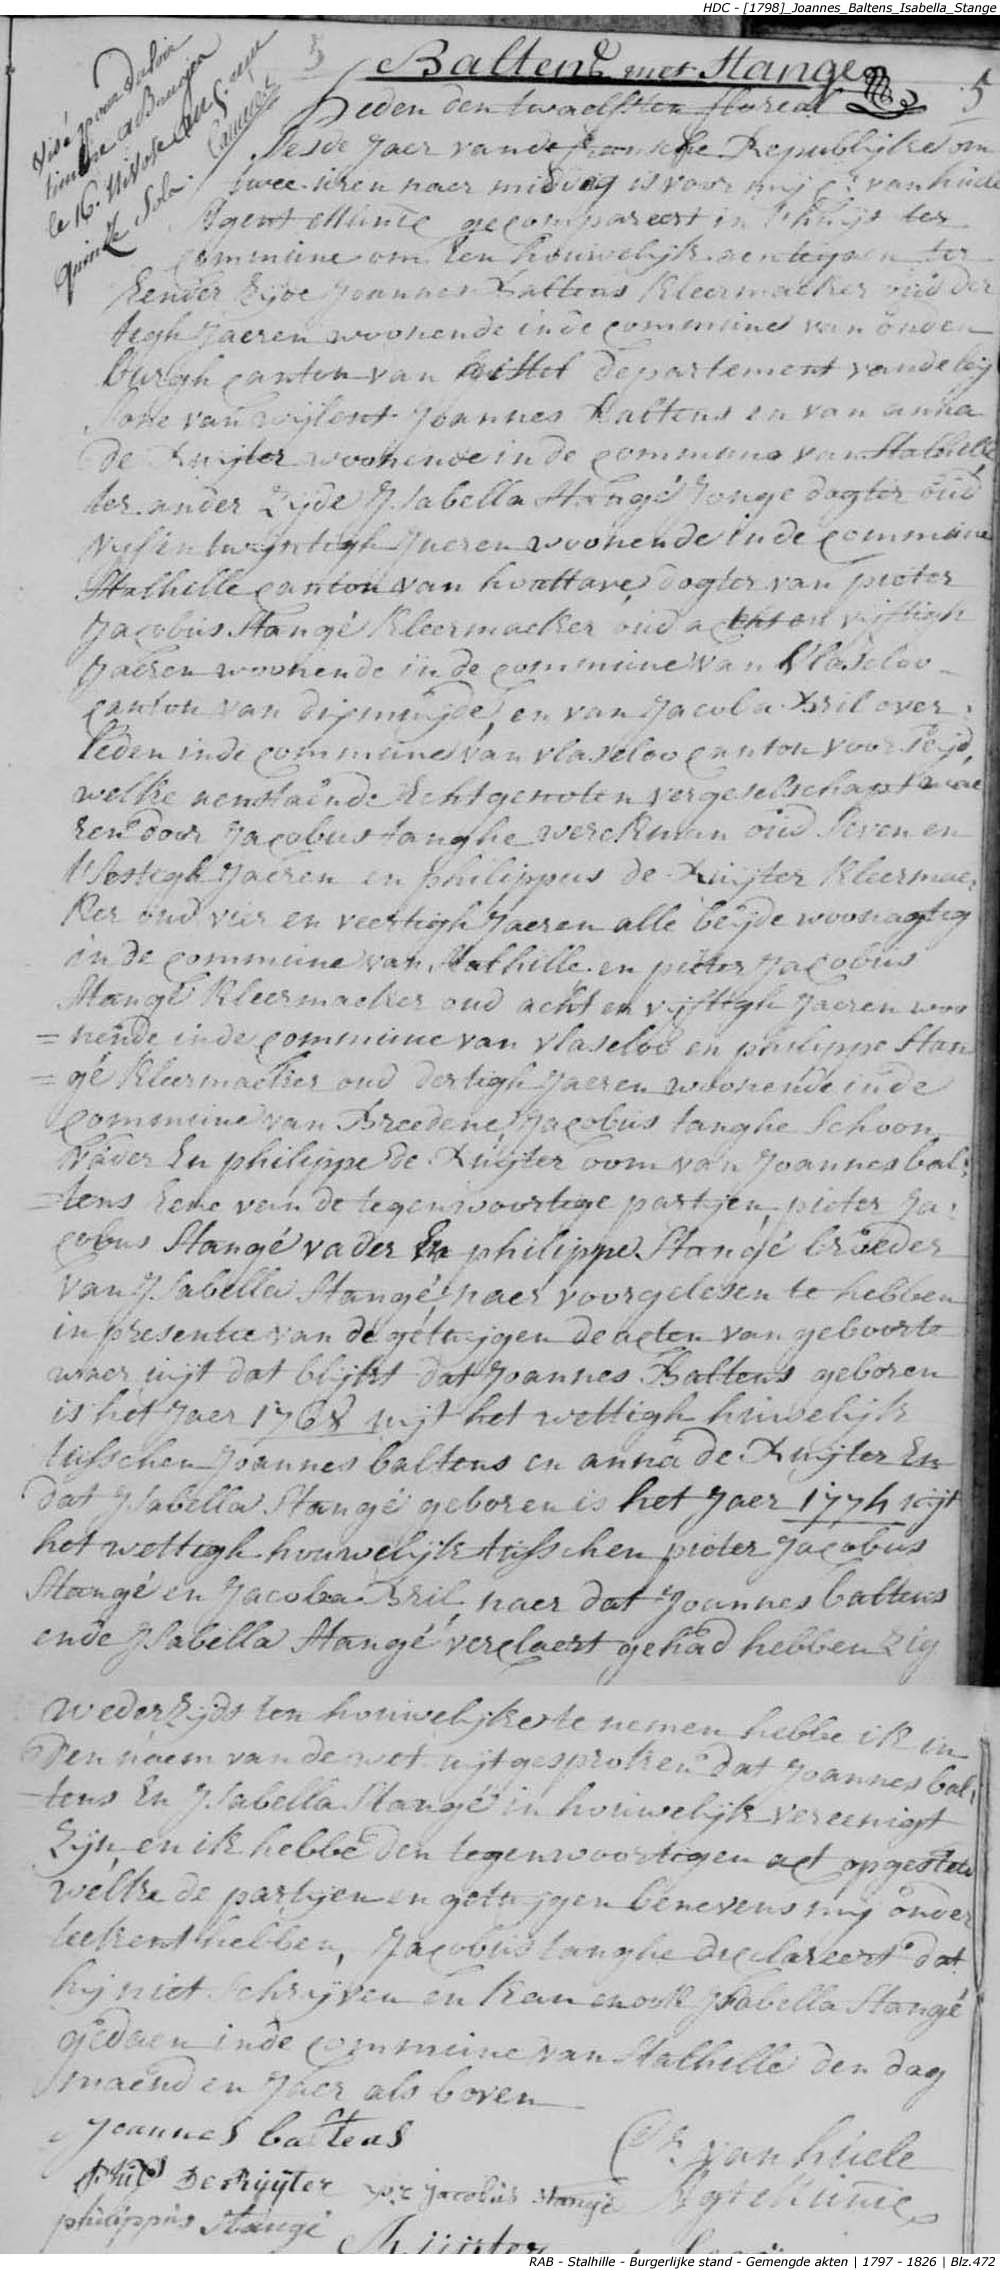 HDC - [1798]_Joannes_Baltens_Isabella_Stange
Visé pour valoir
timbre a Bruges
le 16. Nivose an 9. reçu
quinze Sols.
5
Baltens met Stange
5
Heden den twaelfsten floreal
sesde Jaer van de fransche Republijke om
twee uren naer middag is voor mij C: van huele
Agent Munic gecompareert in t'huijs ter
commune om een houwelijk aentegaen ter
Eender zijde Joannes Baltens kleermaeker oud der
tigh Jaeren woonende in de commune van ouden
burgh canton van Ghistel departement van de leij
sone van wijlent Joannes Baltens en van anna
de Ruijter woonende in de commune van Stalhille
ter ander zijde Isabella Stangé Jonge dogter oud
vijf en twijntigh Jaeren woonende in de commune
Stalhille canton van houttave, dogter van pieter
Jacobus Stangé kleermaeker oud acht en vijftigh
Jaeren woonende in de commune van Vlaseloo
canton van dixmuijde, en van Jacoba Bril over:
leden in de commune van vlaseloo canton voorseijd,
welke aenstaende Echtgenoten vergeselschapt wae
ren door Jacobus tanghe werckman oud seven en
tsestigh Jaeren en philippus de Ruijter kleermae:
ker oud vier en veertigh Jaeren alle beijde woonagtig
in de commune van Stalhille en pieter Jacobus
Stangé kleermaeker oud acht en vijftigh Jaeren woo
= nende in de commune van vlaseloo en philippe Stan
= gé kleermaeker oud dertigh Jaeren woonende in de
commune van Breedene, Jacobus tanghe schoon
vader En philippe de Ruijter oom van Joannes bal:
= tens Eene van de tegenwoortige partijen, pieter Ja:
cobus Stangé vader En philippe Stangé broeder
van Isabella Stangé, naer voorgelesen te hebben
in presentie van de getuijgen de acten van geboorte
waer uijt dat blijkt dat Joannes Baltens geboren
is het Jaer 1768 uijt het wettigh huwelijk
tusschen Joannes baltens en anna de Ruijter En
dat Isabella Stangé geboren is het Jaer 1774 uijt
het wettigh houwelijk tusschen pieter Jacobus
Stangé en Jacoba Bril, naer dat Joannes baltens
ende Isabella Stangé verclaert gehad hebben zig
wederzijds ten houwelijke te nemen hebbe ik in
den naem van de wet uijtgesproken dat Joannes bal:
= tens En Isabella Stangé in houwelijk vereenigt
zijn, en ik hebbe den tegenwoortigen act opgestelt
welke de partijen en getuijgen benevens mij onder
teekent hebben, Jacobus tanghe declareert dat
hij niet schrijven en kan en ook Isabella Stangé
gedaen in de commune van Stalhille den dag
maend en Jaer als boven
Joannes baltens
C: van huele
phil DeRuyter
pr: jacobus stange
Agt Munic
philippus Stange
RAB - Stalhille - Burgerlijke stand - Gemengde akten | 1797 - 1826 | Blz.472